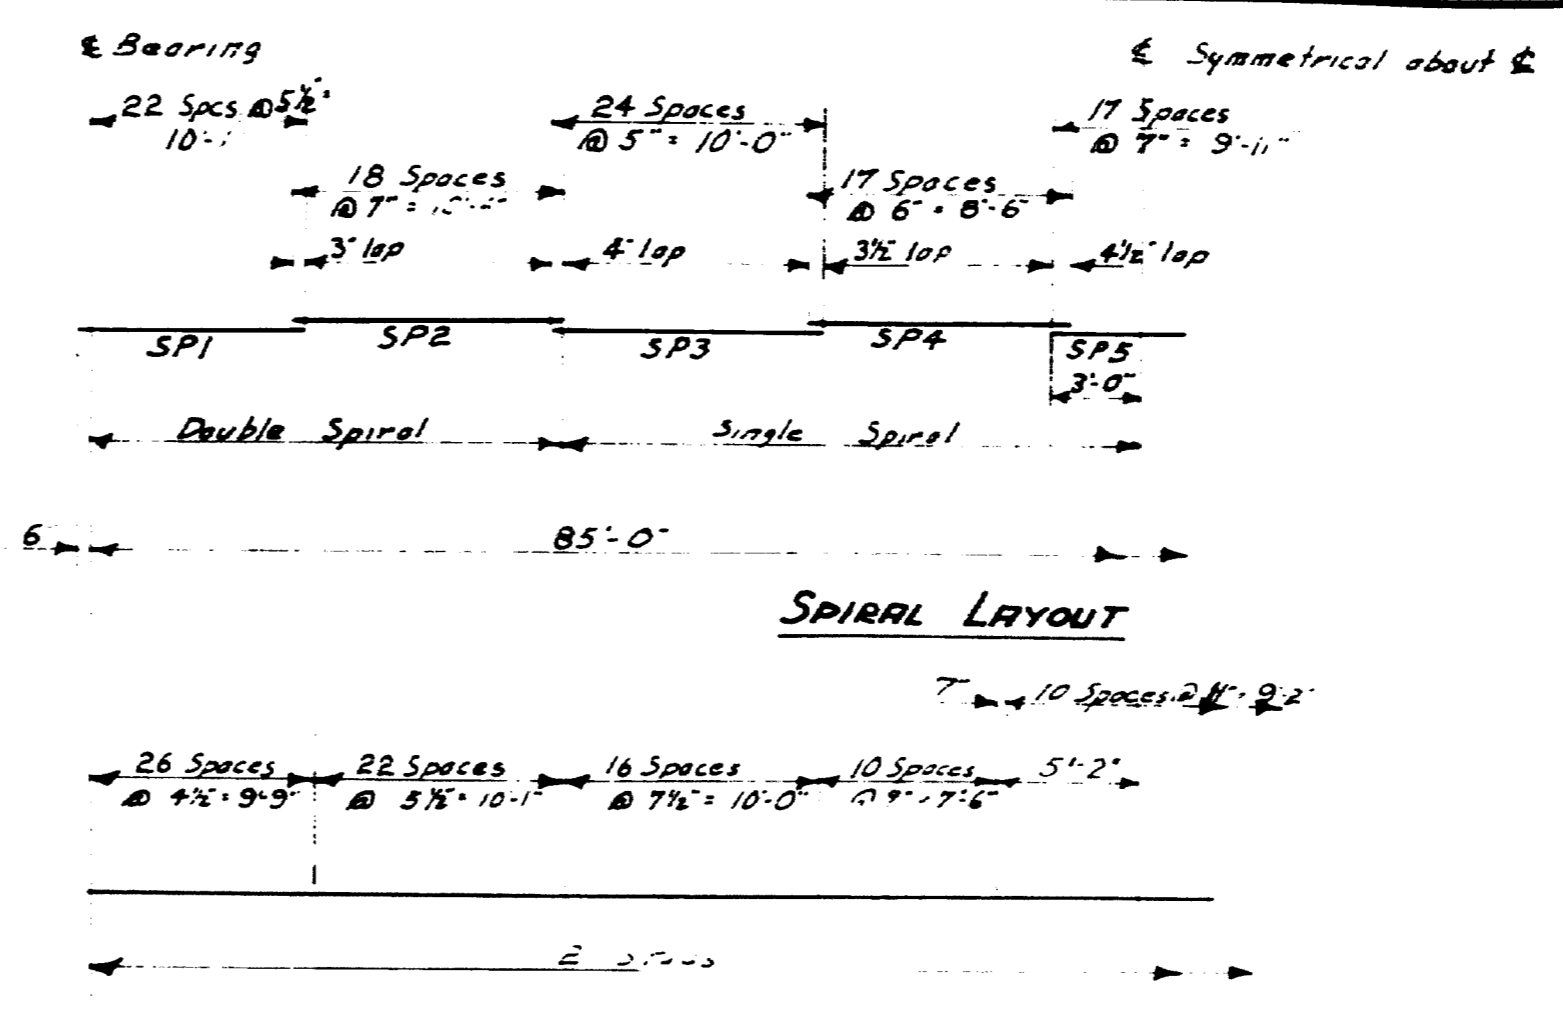 ℄ Bearing
℄ Symmetrical about ℄
22 Spcs @ 5½" =
24 Spaces
@ 5" = 10'-0"
17 Spaces
@ 7" = 9'-11"
18 Spaces
@ 7" =
17 Spaces
@ 6" = 8'-6"
3" lap
4" lap
3½" lap
4½" lap
SP1
SP2
SP3
SP4
SP5
3'-0"
Double Spiral
Single Spiral
6
85'-0"
SPIRAL LAYOUT
7"
10 Spaces @ 11" = 9'-2"
26 Spaces
@ 4½" = 9'-9"
22 Spaces
@ 5½" = 10'-1"
16 Spaces
@ 7½" = 10'-0"
10 Spaces
@ 9" = 7'-6"
5'-2"
2